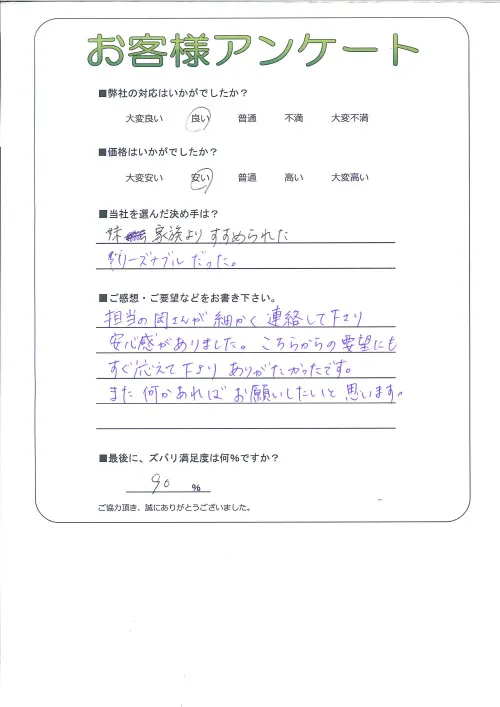 お客様アンケート
■弊社の対応はいかがでしたか?
大変良い 良い 普通 不満 大変不満
■価格はいかがでしたか?
大変安い 安い 普通 高い 大変高い
■当社を選んだ決め手は?
妹 家族よりすすめられた
リーズナブルだった。
■ご感想・ご要望などをお書き下さい。
担当の岡さんが細かく連絡して下さり
安心感がありました。こちらからの要望にも
すぐ応えて下さりありがたかったです。
また何かあればお願いしたいと思います。
■最後に、ズバリ満足度は何%ですか?
90 %
ご協力頂き、誠にありがとうございました。